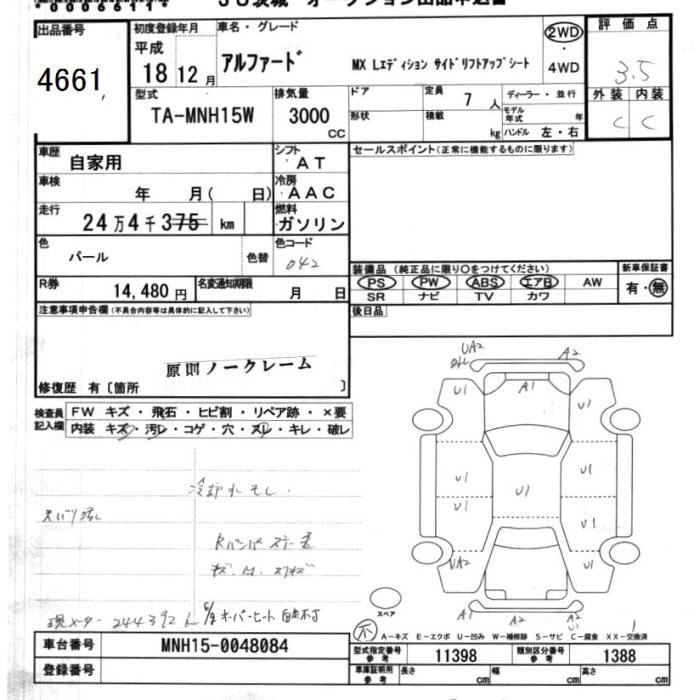 出品番号
4661
初度登録年月
平成
18 12月
車名・グレード
アルファード MX Lエディション サイドリフトアップシート
2WD
・
4WD
評価点
3.5
外装 内装
C C
型式
TA-MNH15W
排気量
3000
CC
ドア
形状
定員 7 人
積載 kg
ディーラー・並行
モデル年式 年
ハンドル 左・右
車歴 自家用
シフト AT
セールスポイント(正常に機能するものに限ります)
車検 年 月( 日)
冷房 AAC
走行 24万4千375 km
燃料 ガソリン
色 パール 色替
色コード 042
R券 14,480円
名変通知期限 月 日
装備品 (純正品に限り○をつけてください)
新車保証書
有・無
PS PW ABS エアB AW
SR ナビ TV カワ
後日品
注意事項申告欄(不具合内容等は具体的に記入して下さい)
原則ノークレーム
修復歴 有〔箇所 〕
検査員記入欄
FW キズ・飛石・ヒビ割・リペア跡・×要
内装 キズ・汚レ・コゲ・穴・スレ・キレ・破レ
冷却水モレ
天バリ
Rバンパ
現メーター 244392
オーバーヒート 自走不可
UA2
A2
U1 A1 U1
U1 U1 U1
U1 U1
UA2 U1
スペア
A1 A2
U1
A-キズ E-エクボ U-凹み W-補修跡 S-サビ C-腐食 XX-交換済
車台番号 MNH15-0048084
登録番号
型式指定番号 参考 11398
類別区分番号 参考 1388
車庫証明用 参考 長さ cm 幅 cm 高さ cm